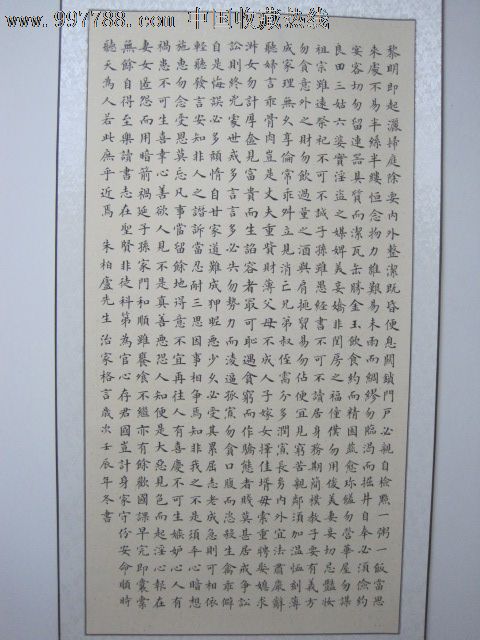 www.997788.com 中国收藏热线
黎明即起灑掃庭除要內外整潔既昏便息關鎖門戶必親自檢點一粥一飯當思
來處不易半絲半縷恒念物力維艱宜未雨而綢繆勿臨渴而掘井自奉必須儉約
宴客切勿留連器具質而潔瓦缶勝金玉飲食約而精園蔬愈珍饈勿營華屋勿謀
良田三姑六婆實淫盜之媒婢美妾嬌非閨房之福僮僕勿用俊美妻妾切忌豔妝
祖宗雖遠祭祀不可不誠子孫雖愚經書不可不讀居身務期簡樸教子要有義方
勿貪意外之財勿飲過量之酒與肩挑貿易勿佔便宜見窮苦親鄰須加溫恤刻薄
成家理無久享倫常乖舛立見消亡兄弟叔侄需分多潤寡長幼內外宜法肅辭嚴
聽婦言乖骨肉豈是丈夫重貲財薄父母不成人子嫁女擇佳壻毋索重聘娶媳求
淑女勿計厚奩見富貴而生諂容者最可恥遇貧窮而作驕態者賤莫甚居家戒爭訟
訟則終兇處世戒多言言多必失勿恃勢力而凌逼孤寡勿貪口腹而恣殺生禽乖僻
自是悔誤必多頹惰自甘家道難成狎昵惡少久必受其累屈志老成急則可相依
輕聽發言安知非人之譖訴當忍耐三思因事相爭焉知非我之不是須平心暗想
施惠勿念受恩莫忘凡事當留餘地得意不宜再往人有喜慶不可生嫉妒心人有
禍患不可生喜幸心善欲人見不是真善惡恐人知便是大惡見色而起淫心報在
妻女匿怨而用暗箭禍延子孫家門和順雖饔飧不繼亦有餘歡國課早完即囊橐
無餘自得至樂讀書志在聖賢非徒科第為官心存君國豈計身家守份安命順時
聽天為人若此庶乎近焉 朱柏廬先生治家格言歲次壬辰年冬書